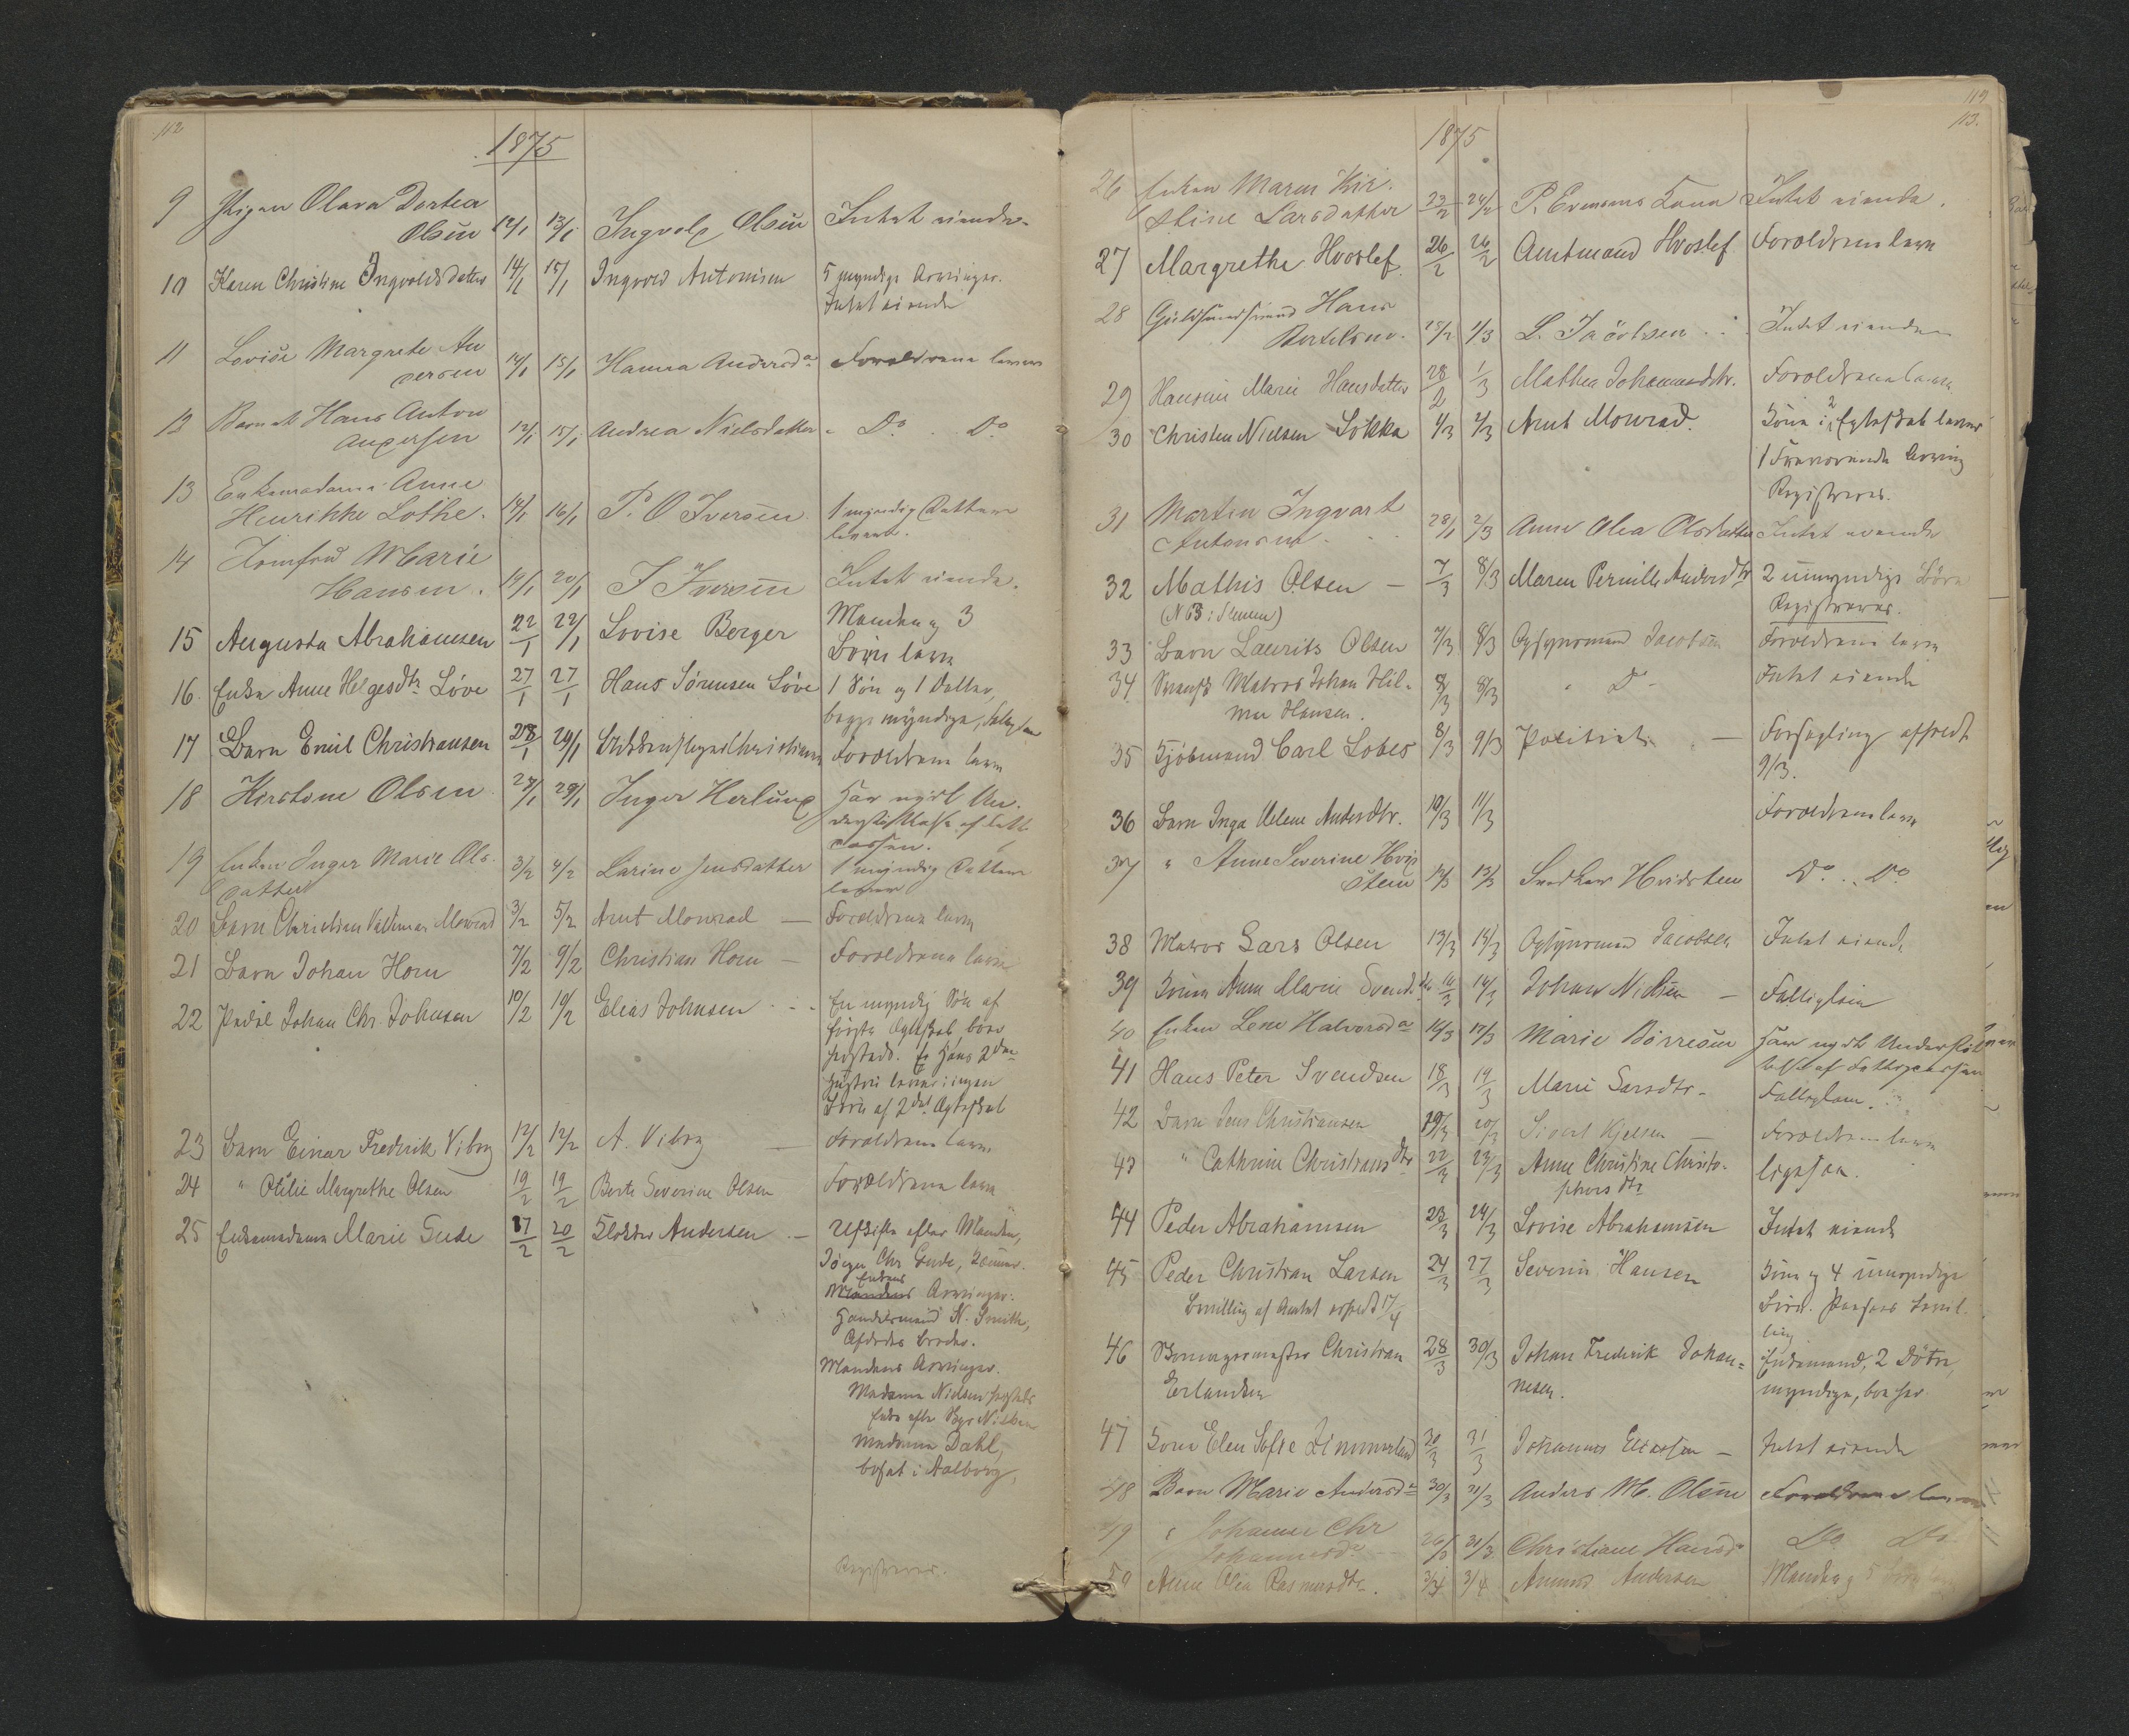 112
1875
9 Pigen Olava Dortea
Olsen 12/1 13/1 Ingvold Olsen Intet eiende.
10 Karen Christine Ingvoldsdatter 14/1 15/1 Ingvold Antonisen 5 myndige Arvinger.
Intet eiende
11 Lovise Margrete An
dersen 14/1 15/1 Hanna Andersda Forældrene lever
12 Barnet Hans Anton
Andersen 12/1 15/1 Andrea Nielsdatter Do Do
13 Enkemadame Anne
Henrikke Lothe. 14/1 16/1 P. O Iversen 1 myndig Datter
lever.
14 Jomfru Marie
Hansen. 19/1 20/1 J Iversen Intet eiende.
15 Augusta Abrahamsen 22/1 22/1 Lovise Berger Manden og 3
Børn lever
16. Enke Anne Helgesdtr Løve 27/1 27/1 Hans Sørensen Løve 1 Søn og 1 Datter,
begge myndige,
17 Barn Emil Christiansen 28/1 29/1 Forældrene lever
18 Kirstine Olsen 28/1 29/1 Inger Herlung Har nydt Un-
derstøttelse af Fatt
cassen.
19 Enken Inger Marie Ols-
datter 3/2 4/2 Larine Jensdatter 1 myndig Datter
lever
20 Barn Christian Valdemar Monrad 3/2 5/2 Arnt Monrad — Forældrene lever
21 Barn Johan Horn 7/2 9/2 Christian Horn — Forældrene lever
22 Johan Chr. Johnsen 10/2 10/2 Elias Johnsen En myndig Søn af
første Ægteskab, boer
hersteds. Er Hans 2den
Hustru lever; ingen
Børn af 2det Ægteskab
23 Barn Einar Frederik Viborg 12/2 12/2 A. Viborg — Forældrene lever
24 " Otilie Margrethe Olsen 19/2 19/2 Berte Severine Olsen Forældrene lever
25 Enkemadame Marie Gude 17/2 20/2 Klokker Andersen — Uskifte efter Manden,
Jørgen Chr Gude,
Enkens
Mandens Arvinger:
Handelsmand N. Smith,
Afdødes Broder.
Mandens Arvinger.
Madame Nielsen hersteds
Enke efter Nielsen
Madame Dahl,
bosat i Aalborg,
Registreres.
119
113.
1875
26 Enken Maren Kir-
stine Larsdatter 23/2 24/2 P. Evensens Kone Intet eiende.
27 Margrethe Hvoslef 26/2 26/2 Amtmand Hvoslef Forældrene lever
28 Guldsmedsvend Hans
Bertelsen. 28/2 1/3 L. Jacobsen Intet eiende
29 Hansine Marie Hansdatter 28/2 1/3 Mathea Johannesdtr. Forældrene lever
30 Christen Nielsen Lokka 1/3 2/3 Arnt Monrad. Kone i 2 Egteskab lever
1 Fraværende Arving
Registreres.
31 Martin Ingvart
Antonsen 28/1 2/3 Anne Olea Olsdatter Intet eiende
32 Mathis Olsen — 7/3 8/3 Maren Pernille Andersdtr 2 umyndige Børn
Registreres.
33 Barn Laurits Olsen 7/3 8/3 Opsynsmand Jacobsen Forældrene lever
34 Svensk Matros Johan Hil-
mer Hansen. 8/3 8/3 " Do - Intet eiende
35 Kjøbmand Carl Lobes 8/3 9/3 Politiet — Forsegling afholdt
9/3.
36 Barn Inga Helene Andersdtr. 10/3 11/3 Forældrene lever
37 " Anne Severine Hvid
sten 12/3 13/3 Snedker Hvidsten Do Do
38 Matros Lars Olsen 13/3 14/3 Opsynsmand Jacobsen Intet eiende
39 Konen Anne Marie 14/3 16/3 Johan Nielsen — Fattiglem
40 Enken Lene Halvorsda 16/3 17/3 Marie Børresen Har nydt Understøt
telse af Fattigcassen
41 Hans Peter Svendsen 18/3 19/3 Marie Larsdtr. Fattiglem.
42 Barn Jens Christiansen 19/3 20/3 Sivert Kjelsen — Forældrene lever
43 " Cathrine Christiansdtr 22/3 23/3 Anne Christine Christo-
phersdtr ligesaa.
44 Peder Abrahamsen 23/3 24/3 Lovise Abrahamsen Intet eiende
45 Peder Christian Larsen 24/3 27/3 Severin Hansen Kone og 4 umyndige
Bevilling af Amtet 17/4 Børn.
46 Christian
Erlandsen 28/3 30/3 Johan Frederik Johan=
nesen. Enkemand, 2 Døtre,
myndige, boe her.
47 Kone Elen Sofie Zimmerland 30/3 31/3 Johannes Eliassen — Intet eiende
48 Barn Marie Andersda 30/3 31/3 Anders M. Olsen Forældrene lever
49 " Johanne Chr
Johannesda 26/3 31/3 Christiane Hansda Do Do
50 Anne Olea Rasmusdtr. 3/4 3/4 Amund Andersen Manden og 5